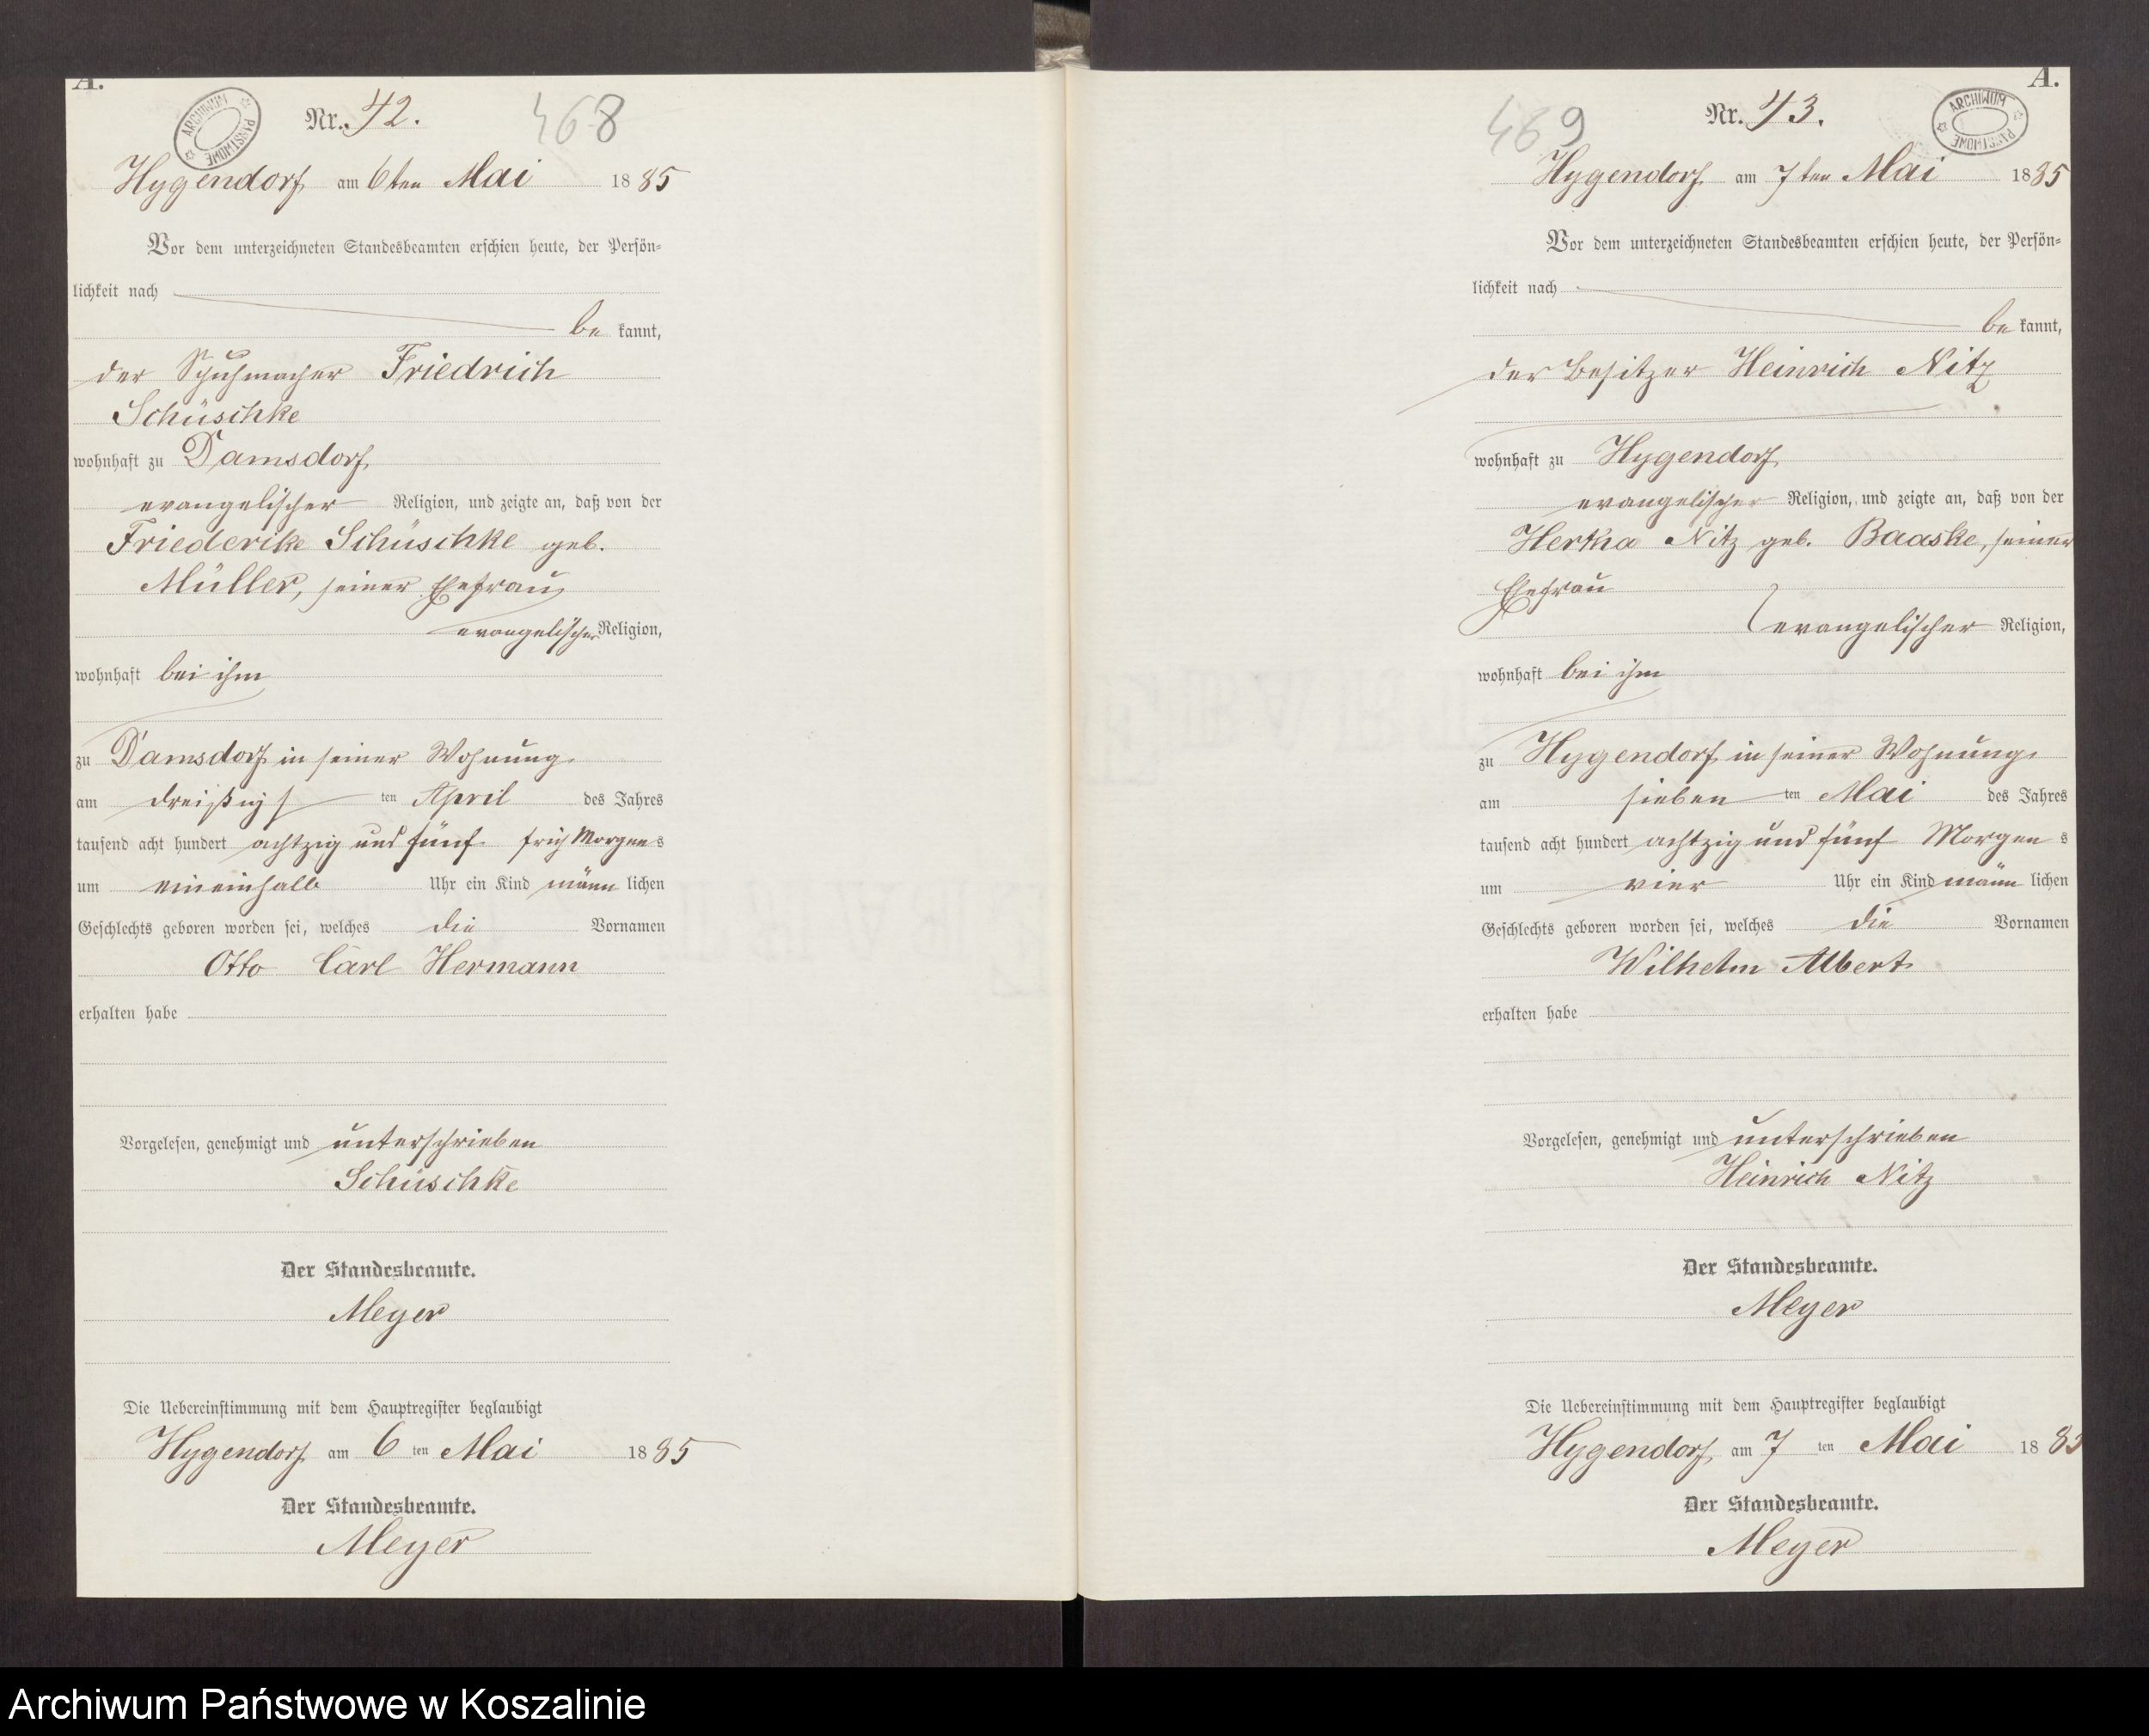 A.
ARCHIWUM PAŃSTWOWE
Nr. 42.
468
Hygendorf am 6ten Mai 1885
Vor dem unterzeichneten Standesbeamten erschien heute, der Persön-
lichkeit nach
be kannt,
der Schuhmacher Friedrich
Schüschke
wohnhaft zu Damsdorf
evangelischer Religion, und zeigte an, daß von der
Friederike Schüschke geb.
Müller, seiner Ehefrau
evangelischer Religion,
wohnhaft bei ihm
zu Damsdorf in seiner Wohnung
am dreißigs ten April des Jahres
tausend acht hundert achtzig und fünf früh Morgens
um eineinhalb Uhr ein Kind männ lichen
Geschlechts geboren worden sei, welches die Vornamen
Otto Carl Hermann
erhalten habe
Vorgelesen, genehmigt und unterschrieben
Schüschke
Der Standesbeamte.
Meyer
Die Uebereinstimmung mit dem Hauptregister beglaubigt
Hygendorf am 6 ten Mai 1885
Der Standesbeamte.
Meyer
A.
469
Nr. 43.
ARCHIWUM PAŃSTWOWE
Hygendorf am 7ten Mai 1885
Vor dem unterzeichneten Standesbeamten erschien heute, der Persön-
lichkeit nach
be kannt,
der Besitzer Heinrich Nitz
wohnhaft zu Hygendorf
evangelischer Religion, und zeigte an, daß von der
Hertha Nitz geb. Baaske, seiner
Ehefrau
evangelischer Religion,
wohnhaft bei ihm
zu Hygendorf in seiner Wohnung
am sieben ten Mai des Jahres
tausend acht hundert achtzig und fünf Morgen s
um vier Uhr ein Kind männ lichen
Geschlechts geboren worden sei, welches die Vornamen
Wilhelm Albert
erhalten habe
Vorgelesen, genehmigt und unterschrieben
Heinrich Nitz
Der Standesbeamte.
Meyer
Die Uebereinstimmung mit dem Hauptregister beglaubigt
Hygendorf am 7 ten Mai 1885
Der Standesbeamte.
Meyer
Archiwum Państwowe w Koszalinie